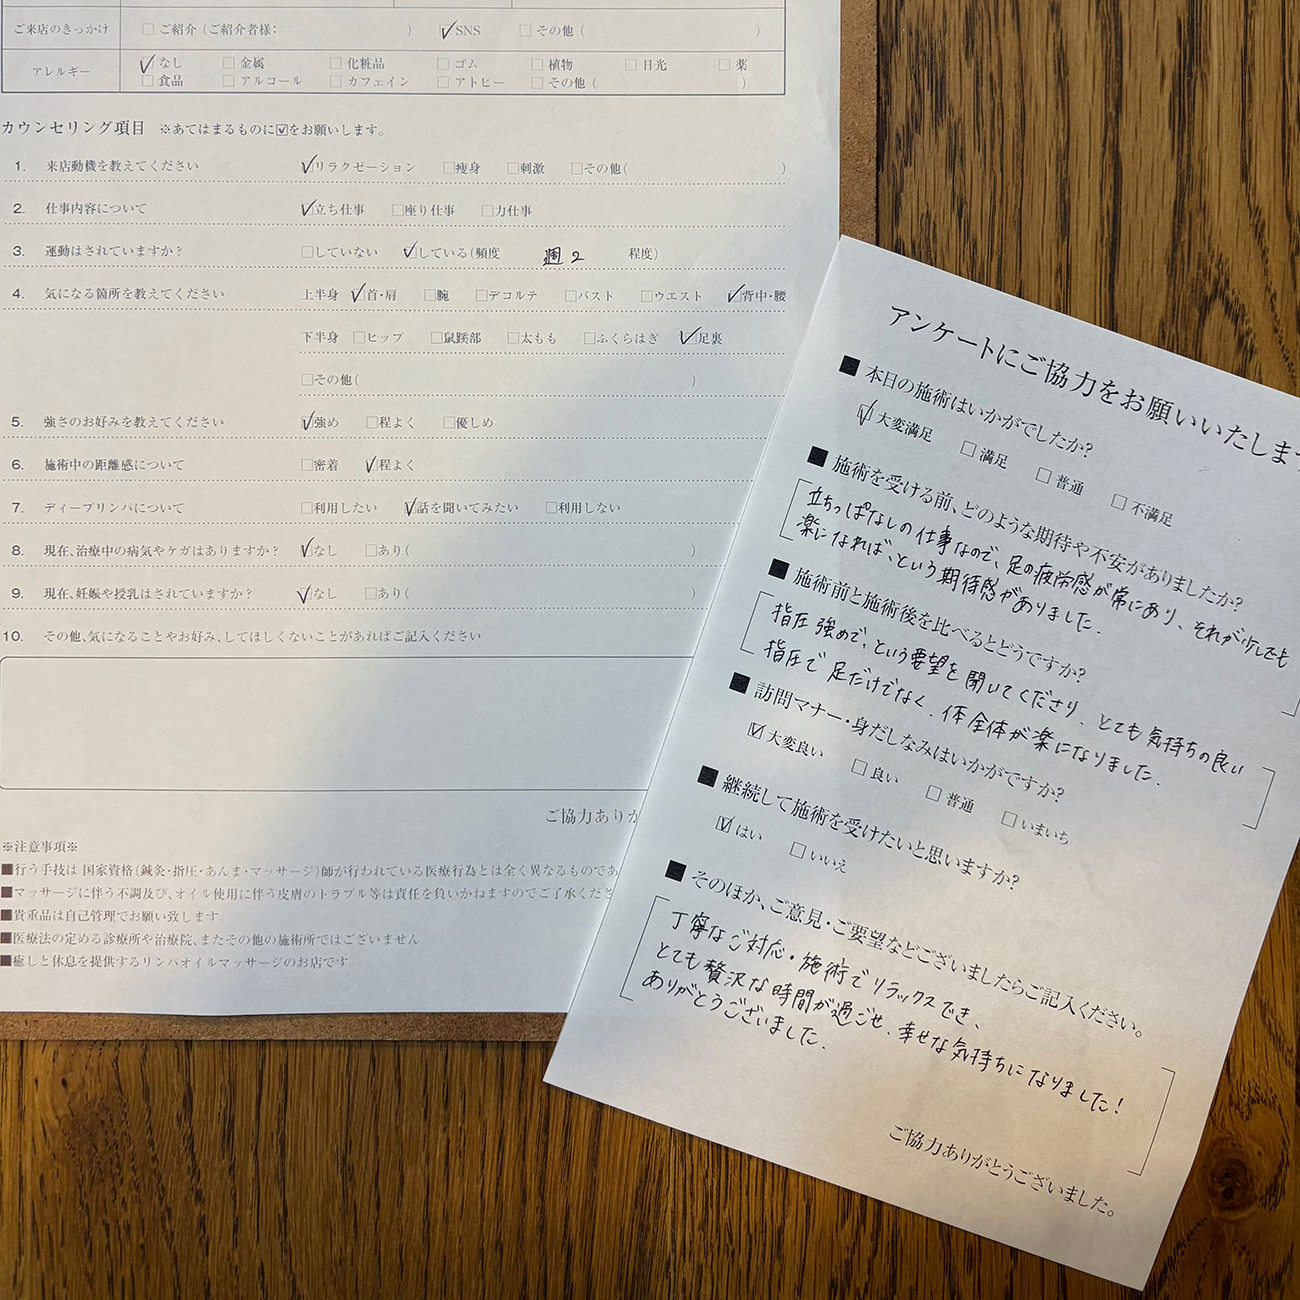 ご来店のきっかけ □ご紹介(ご紹介者様: ) ☑SNS □その他( )
アレルギー ☑なし □金属 □化粧品 □ゴム □植物 □日光 □薬
□食品 □アルコール □カフェイン □アトピー □その他( )
カウンセリング項目 ※あてはまるものに☑をお願いします。
1. 来店動機を教えてください ☑リラクゼーション □痩身 □刺激 □その他( )
2. 仕事内容について ☑立ち仕事 □座り仕事 □力仕事
3. 運動はされていますか? □していない ☑している(頻度 週2 程度)
4. 気になる箇所を教えてください 上半身 ☑首・肩 □腕 □デコルテ □バスト □ウエスト ☑背中・腰
下半身 □ヒップ □鼠蹊部 □太もも □ふくらはぎ ☑足裏
□その他( )
5. 強さのお好みを教えてください ☑強め □程よく □優しめ
6. 施術中の距離感について □密着 ☑程よく
7. ディープリンパについて □利用したい ☑話を聞いてみたい □利用しない
8. 現在、治療中の病気やケガはありますか? ☑なし □あり( )
9. 現在、妊娠や授乳はされていますか? ☑なし □あり( )
10. その他、気になることやお好み、してほしくないことがあればご記入ください
ご協力ありが
※注意事項※
■行う手技は 国家資格(鍼灸・指圧・あんま・マッサージ)師が行われている医療行為とは全く異なるものであ
■マッサージに伴う不調及び、オイル使用に伴う皮膚のトラブル等は責任を負いかねますのでご了承くださ
■貴重品は自己管理でお願い致します。
■医療法の定める診療所や治療院、またその他の施術所ではございません
■癒しと休息を提供するリンパオイルマッサージのお店です。
アンケートにご協力をお願いいたします
■ 本日の施術はいかがでしたか?
☑大変満足 □満足 □普通 □不満足
■ 施術を受ける前、どのような期待や不安がありましたか?
立ちっぱなしの仕事なので、足の疲労感が常にあり、それが少しでも
楽になれば、という期待感がありました。
■ 施術前と施術後を比べるとどうですか?
指圧強めで、という要望を聞いてくださり、とても気持ちの良い
指圧で足だけでなく、体全体が楽になりました。
■ 訪問マナー・身だしなみはいかがですか?
☑大変良い □良い □普通 □いまいち
■ 継続して施術を受けたいと思いますか?
☑はい □いいえ
■ そのほか、ご意見・ご要望などございましたらご記入ください。
丁寧なご対応・施術でリラックスでき、
とても贅沢な時間が過ごせ、幸せな気持ちになりました!
ありがとうございました。
ご協力ありがとうございました。